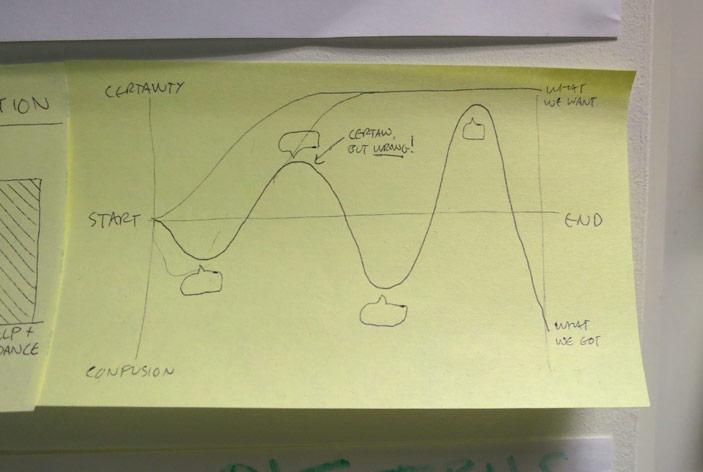 TION
CERTAINTY
WHAT
WE WANT
CERTAIN,
BUT WRONG!
START
END
LP +
DANCE
WHAT
WE GOT
CONFUSION